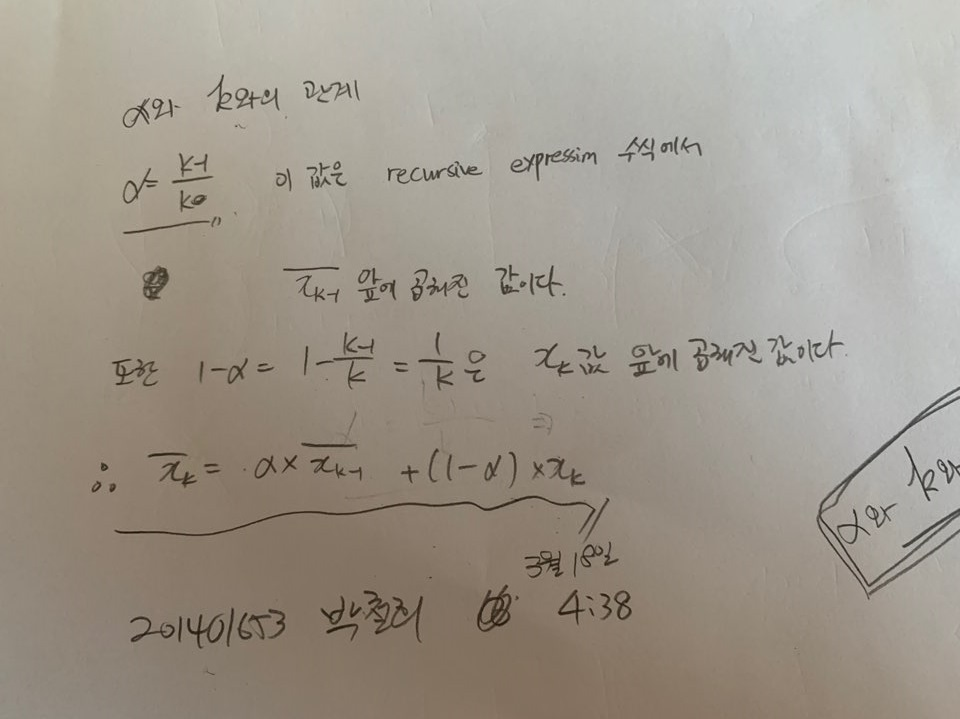 α와 k와의 관계
α = \frac{k-1}{k} 이 값은 recursive expression 수식에서
\overline{x_{k-1}} 앞에 곱해진 값이다.
또한 1-α = 1-\frac{k-1}{k} = \frac{1}{k}은 x_k 값 앞에 곱해진 값이다.
∴ \overline{x_k} = α × \overline{x_{k-1}} + (1-α) × x_k
3월 18일
201401653 4:38
α와 k와